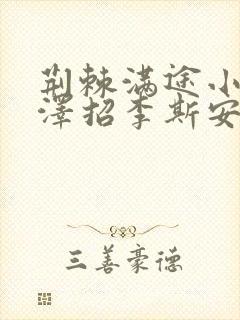 荆棘满途小
澤招李斯安
三善豪德